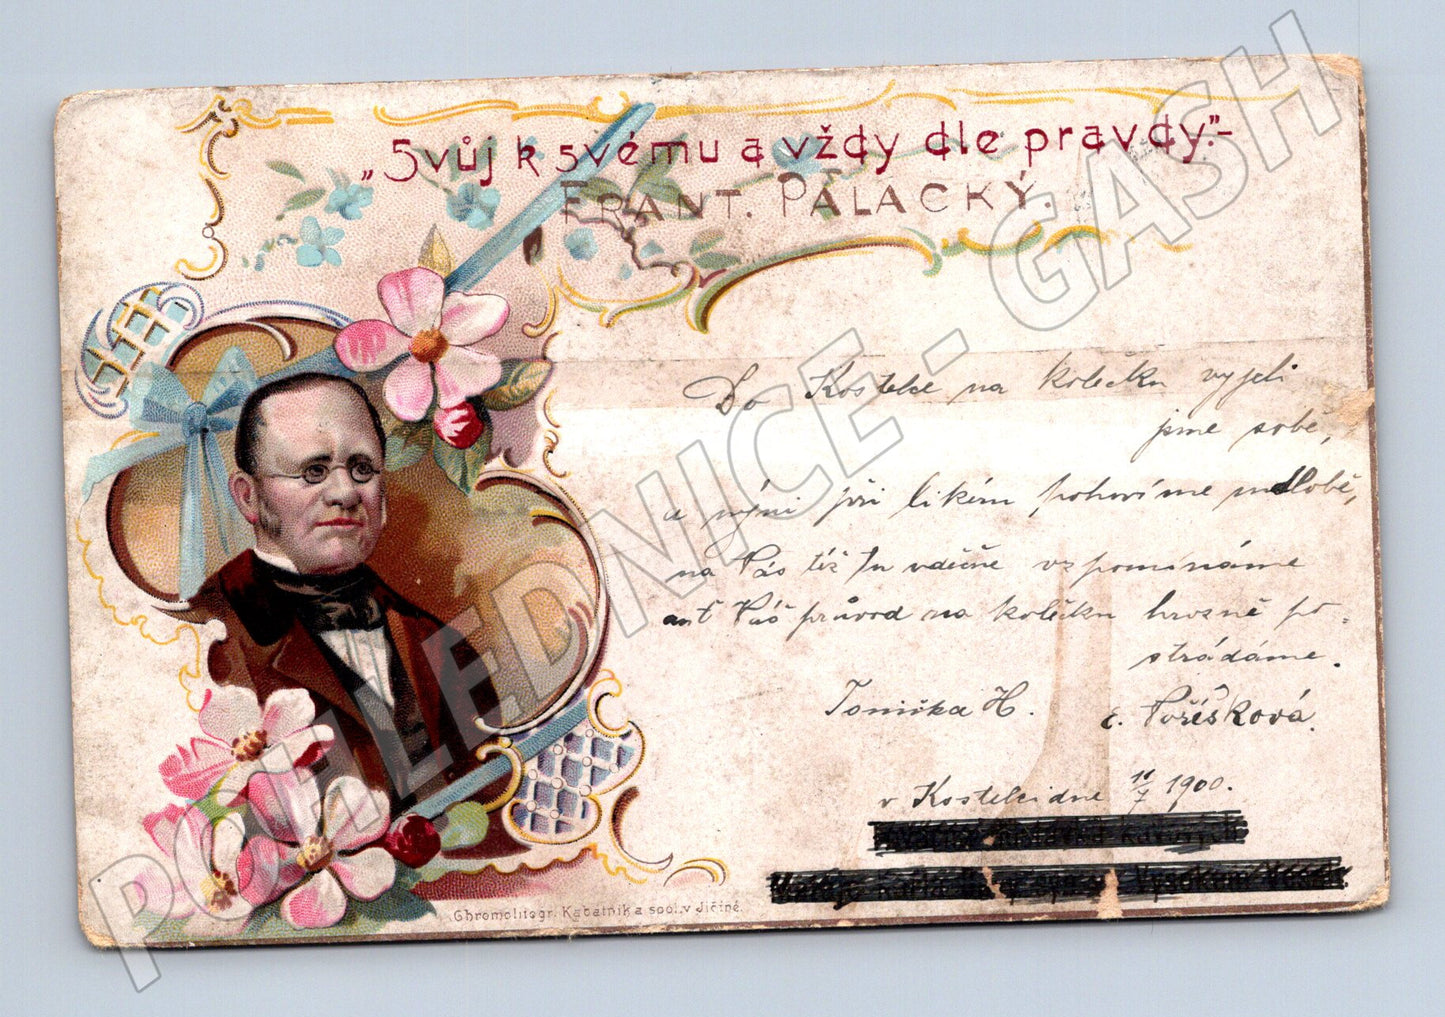 „Svůj k svému a vždy dle pravdy.“-
FRANT. PALACKÝ.
Do Kostelce na kolečku vyjeli
jsme sobě,
a nyní při likéru hovíme mdlobě,
na Vás též tu vděčně vzpomínáme
ant Váš průvod na kolečku hrozně po-
strádáme.
Tonička H. E. Pořésková.
v Kostelci dne 11/7 1900.
Chromolitogr. Kabatnik a spol. v Jičíně.
POHLEDNICE - GASH